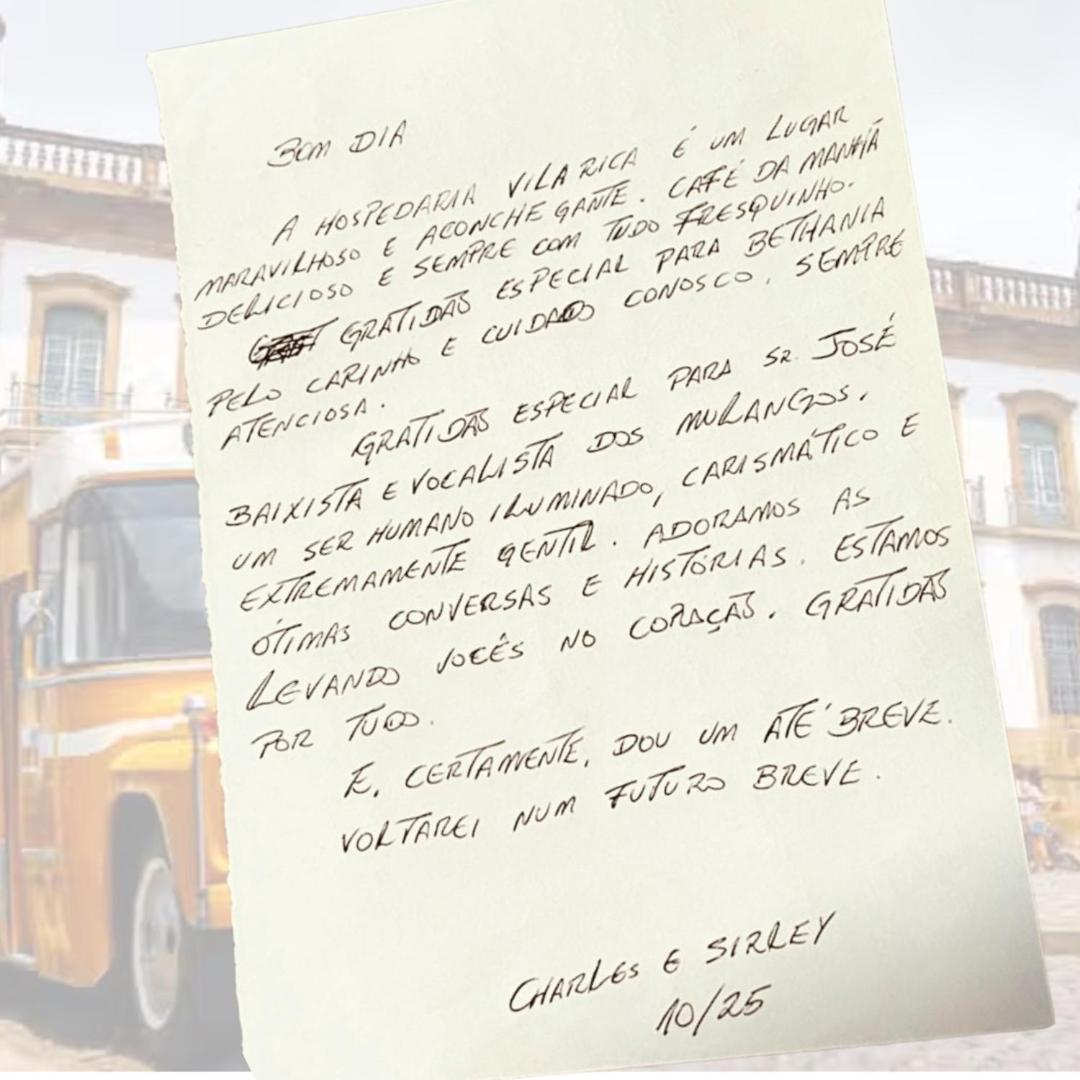 BOM DIA
A HOSPEDARIA VILA RICA É UM LUGAR
MARAVILHOSO E ACONCHEGANTE. CAFÉ DA MANHÃ
DELICIOSO E SEMPRE COM TUDO FRESQUINHO.
GRATIDÃO ESPECIAL PARA BETHANIA
PELO CARINHO E CUIDADO CONOSCO. SEMPRE
ATENCIOSA.
GRATIDÃO ESPECIAL PARA SR. JOSÉ
BAIXISTA E VOCALISTA DOS MURANGOS.
UM SER HUMANO ILUMINADO, CARISMÁTICO E
EXTREMAMENTE GENTIL. ADORAMOS AS
ÓTIMAS CONVERSAS E HISTÓRIAS. ESTAMOS
LEVANDO VOCÊS NO CORAÇÃO. GRATIDÃO
POR TUDO.
E, CERTAMENTE, DOU UM ATÉ BREVE.
VOLTAREI NUM FUTURO BREVE.
CHARLES E SIRLEY
10/25